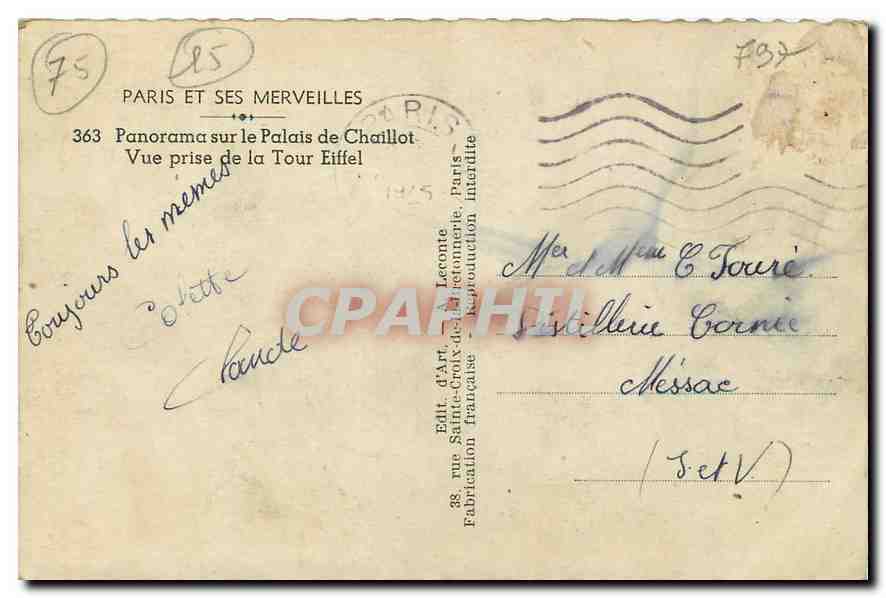 75
25
797
PARIS ET SES MERVEILLES
363 Panorama sur le Palais de Chaillot
Vue prise de la Tour Eiffel
PARIS
Toujours les mêmes
Colette
Claude
Edit. d'Art. - A. Leconte
38, rue Sainte-Croix-de-la-Bretonnerie, Paris
Fabrication française - Reproduction interdite
Mer et Mme C Touré
Distillerie Cornie
Méssac
(I. et V.)
CPAPHIL